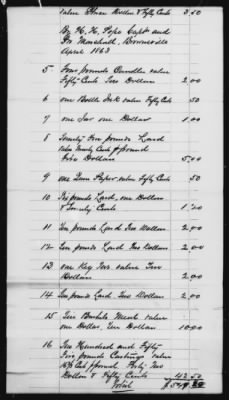 value Three Dollars & Fifty Cents 3.50
By H. H. Pope Capt and
Pro Marshall, Bonneville
April 1863
5 Four pounds Candles value
Fifty Cents Two Dollars 2.00
6 one Bottle Ink value Fifty Cents 50
7 one Jar one Dollar 1.00
8 Twenty five pounds Lard
value Twenty Cents p pound
Five Dollars 5.00
9 one Ream Paper value Fifty Cents 50
10 Six pounds Lard, one Dollar
& Twenty Cents 1.20
11 Ten pounds Lard Two Dollars 2.00
12 Ten pounds Lard Two Dollars 2.00
13 one Keg value Two
Dollars 2.00
14 Ten pounds Lard Two Dollars 2.00
15 Ten Bushels Meal value
one Dollar, Ten Dollars 10.00
16 Two Hundred and Fifty
pounds Castings value
Cents p pound Forty Two
Dollars & Fifty Cents 42.50
Total